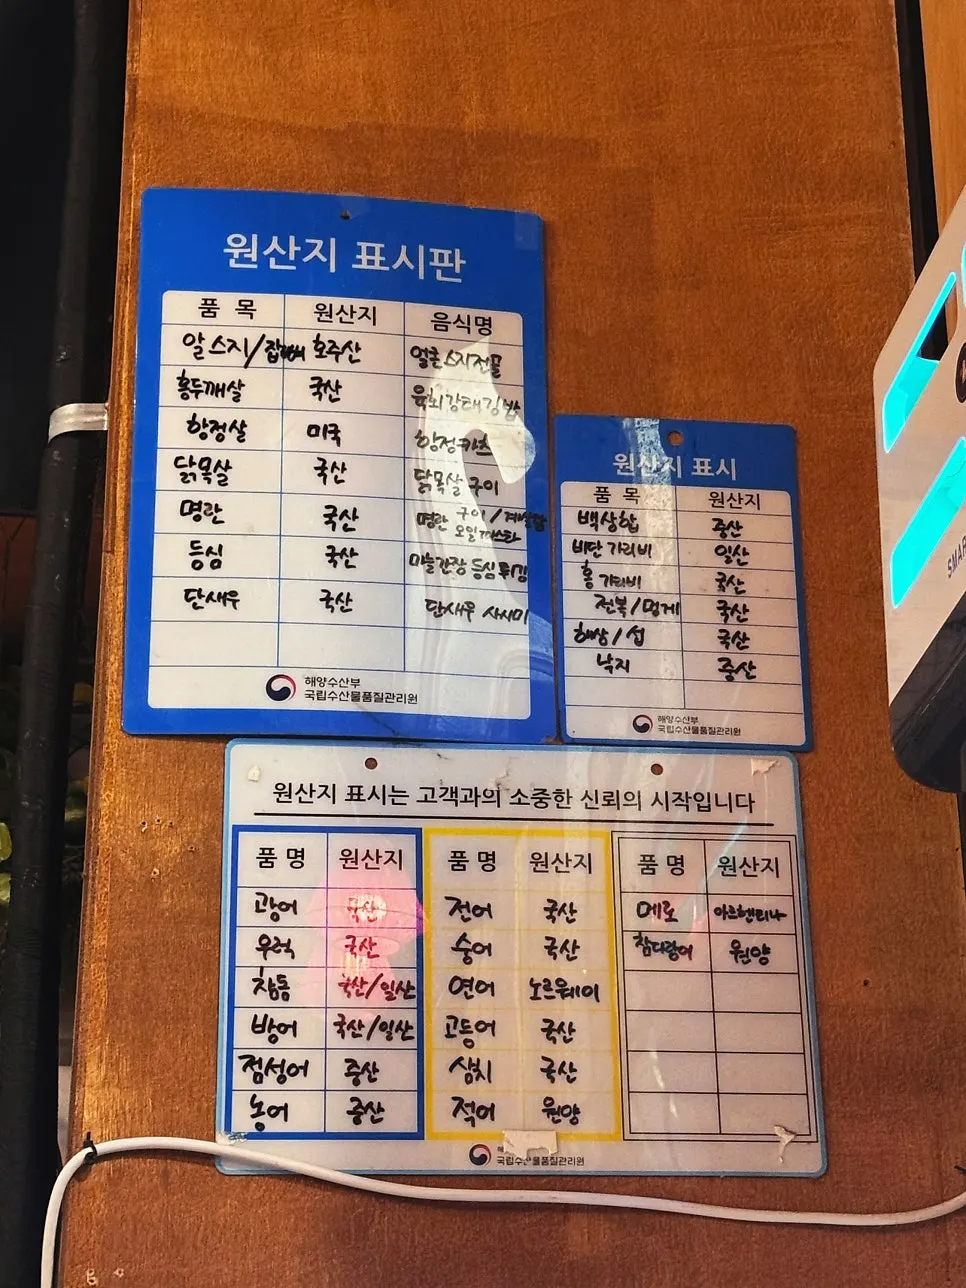 원산지 표시판
품 목 원산지 음식명
알스지/잡뼈 호주산 얼큰스지전골
홍두깨살 국산 육회감태김밥
항정살 미국 항정카츠
닭목살 국산 닭목살 구이
명란 국산 명란 구이/계살말
오일파스타
등심 국산 마늘간장 등심튀김
단새우 국산 단새우 사시미
해양수산부
국립수산물품질관리원
원산지 표시
품 목 원산지
백상합 중산
비단가리비 일산
홍가리비 국산
전복/멍게 국산
해삼/섭 국산
낙지 중산
해양수산부
국립수산물품질관리원
원산지 표시는 고객과의 소중한 신뢰의 시작입니다
품 명 원산지 품 명 원산지 품 명 원산지
광어 국산 전어 국산 메로 아르헨티나
우럭 국산 숭어 국산 참다랑어 원양
참돔 국산/일산 연어 노르웨이
방어 국산/일산 고등어 국산
점성어 중산 삼치 국산
농어 중산 적어 원양
국립수산물품질관리원